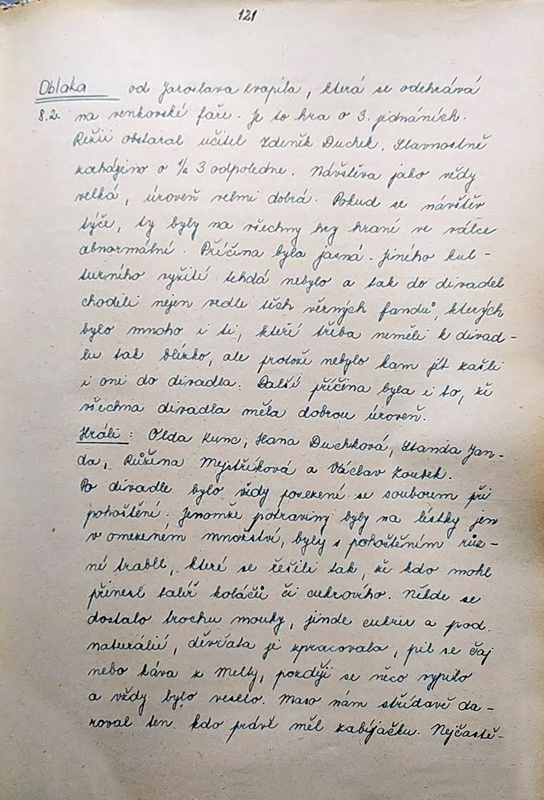 121
Oblaka od Jaroslava Kvapila, která se odehrává
8.2. na venkovské faře. Je to hra o 3. jednáních.
Režii obstaral učitel Zdeněk Duchek. Slavnostně
zahájeno o 1/2 3 odpoledne. Návštěva jako vždy
velká, úroveň velmi dobrá. Pokud se návštěv
týče, ty byly na všechny hry hrané ve válce
abnormální. Příčina byla jasná. Jiného kul-
turního vyžití tehdá nebylo a tak do divadel
chodili nejen vedle těch věrných fandů, kterých
bylo mnoho i ti, kteří třeba neměli k divad-
lu tak blízko, ale protože nebylo kam jít zašli
i oni do divadla. Další příčina byla i to, že
všechna divadla měla dobrou úroveň.
Hráli: Olda Kunc, Hana Duchková, Standa Jan-
da, Růžena Mejstříková a Václav Zoubek.
Po divadle bylo vždy posezení se souborem při
pohoštění. Jenomže potraviny byly na lístky jen
v omezeném množství, byly s pohoštěním růz-
né trabli, které se řešili tak, že kdo mohl
přinesl talíř koláčů či cukroví. Někde se
dostalo trochu mouky, jinde cukru a pod.
naturálií, děvčata je zpracovala, pil se čaj
nebo káva z Melty, později se něco vypilo
a vždy bylo veselo. Maso nám střídavě da-
roval ten kdo právě měl zabíjačku. Nejčastě-